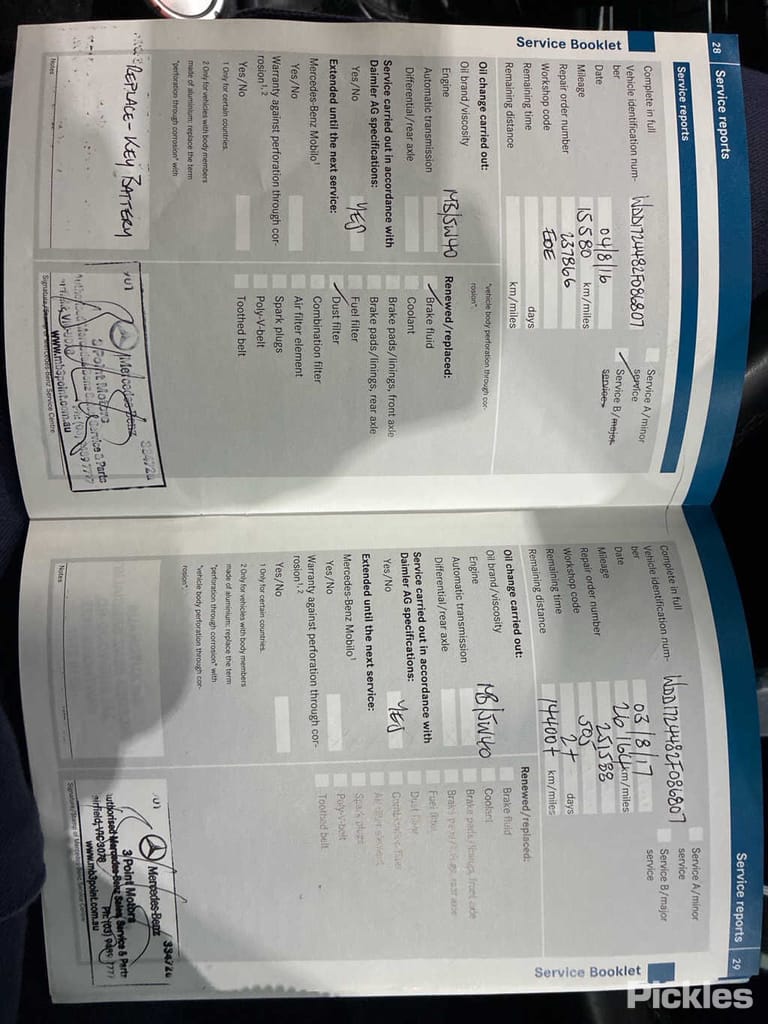 28 Service reports
Service reports
Complete in full
Vehicle identification num-
ber
WDD1724482F086807
Date 04/8/16
Mileage 15580 km/miles
Repair order number 237866
Workshop code
Remaining time days
Remaining distance km/miles
Service A/minor
service
Service B/major
service
Oil change carried out:
Oil brand/viscosity
Engine MB/5W40
Automatic transmission
Differential/rear axle
Service carried out in accordance with
Daimler AG specifications:
Yes/No YES
Extended until the next service:
Mercedes-Benz Mobilo1
Yes/No
Warranty against perforation through cor-
rosion1,2
Yes/No
1 Only for certain countries.
2 Only for vehicles with body members
made of aluminium: replace the term
"perforation through corrosion" with
"vehicle body perforation through cor-
rosion".
Renewed/replaced:
Brake fluid
Coolant
Brake pads/linings, front axle
Brake pads/linings, rear axle
Fuel filter
Dust filter
Combination filter
Air filter element
Spark plugs
Poly-V-belt
Toothed belt
Notes
REPLACE - KEY BATTERY
Mercedes-Benz
3 Point Motors
www.mb3point.com.au
Service Booklet
Service reports 29
Complete in full
Vehicle identification num-
ber
WDD1724482F086807
Date 03/8/17
Mileage 26164 km/miles
Repair order number 251588
Workshop code 505
Remaining time 2+ days
Remaining distance 14400+ km/miles
Service A/minor
service
Service B/major
service
Oil change carried out:
Oil brand/viscosity
Engine MB/5W40
Automatic transmission
Differential/rear axle
Service carried out in accordance with
Daimler AG specifications:
Yes/No YES
Extended until the next service:
Mercedes-Benz Mobilo1
Yes/No
Warranty against perforation through cor-
rosion1,2
Yes/No
1 Only for certain countries.
2 Only for vehicles with body members
made of aluminium: replace the term
"perforation through corrosion" with
"vehicle body perforation through cor-
rosion".
Renewed/replaced:
Brake fluid
Coolant
Brake pads/linings, front axle
Brake pads/linings, rear axle
Fuel filter
Dust filter
Combination filter
Air filter element
Spark plugs
Poly-V-belt
Toothed belt
Notes
Mercedes-Benz
3 Point Motors
Authorised Mercedes-Benz Sales, Service & Parts
Fairfield, VIC 3078
www.mb3point.com.au
Service Booklet
Pickles